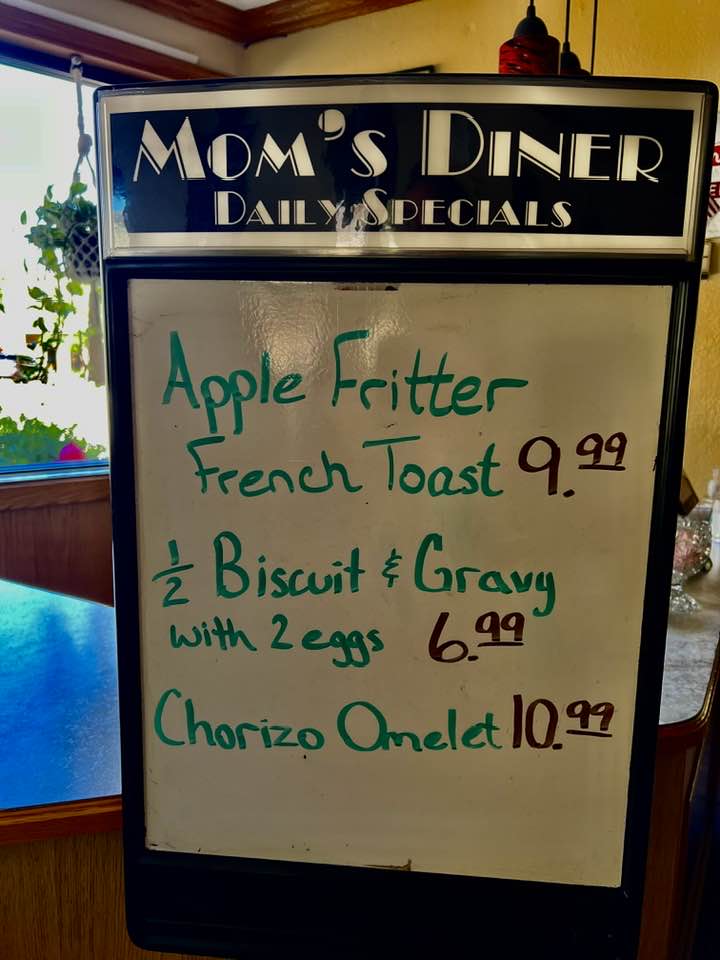 MOM'S DINER
DAILY SPECIALS
Apple Fritter
French Toast 9.99
½ Biscuit & Gravy
with 2 eggs 6.99
Chorizo Omelet 10.99